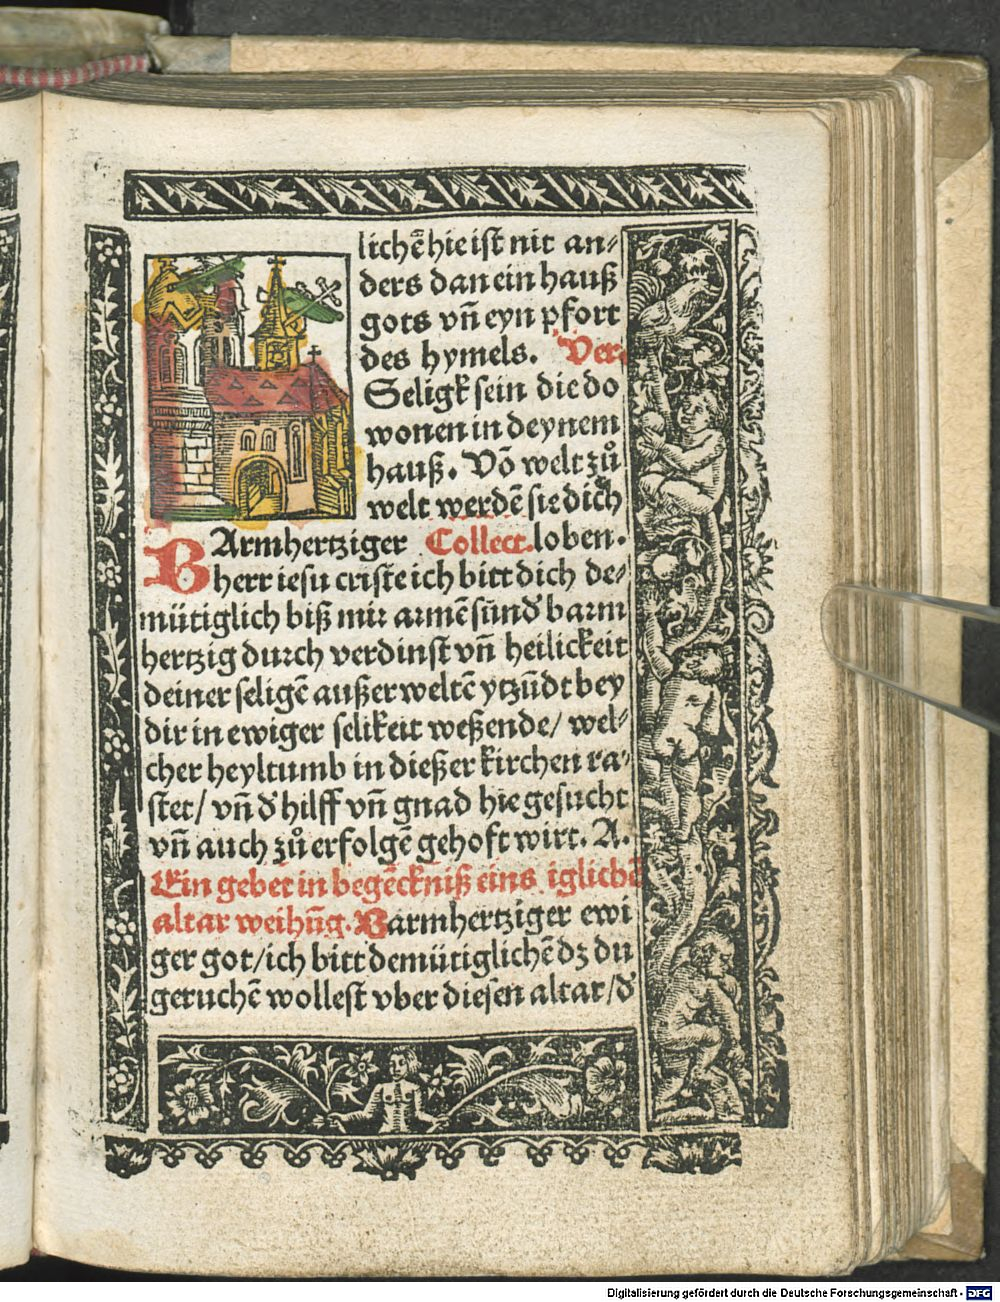 lichē hie ist nit an⸗
ders dan ein hauß
gots vn̄ eyn pfort
des hymels. Ver.
Seligk sein die do
wonen in deynem
hauß. Vō welt zů
welt werdē sie dich
BArmhertziger Collect. loben.
herr iesu criste ich bitt dich de⸗
mütiglich biß mir armē sūnd' barm
hertzig durch verdinst vn̄ heilickeit
deiner seligē außerweltē ytzūdt bey
dir in ewiger selikeit weßende/ wel⸗
cher heyltumb in dießer kirchen ra⸗
stet/ vn̄ d' hilff vn̄ gnad hie gesucht
vn̄ auch zů erfolgē gehoft wirt. A.
Ein gebet in begēckniß eins iglichē
altar weihūg. Barmhertziger ewi
ger got/ ich bitt demütiglichē dz du
geruchē wollest vber diesen altar/ d'
Digitalisierung gefördert durch die Deutsche Forschungsgemeinschaft - DFG